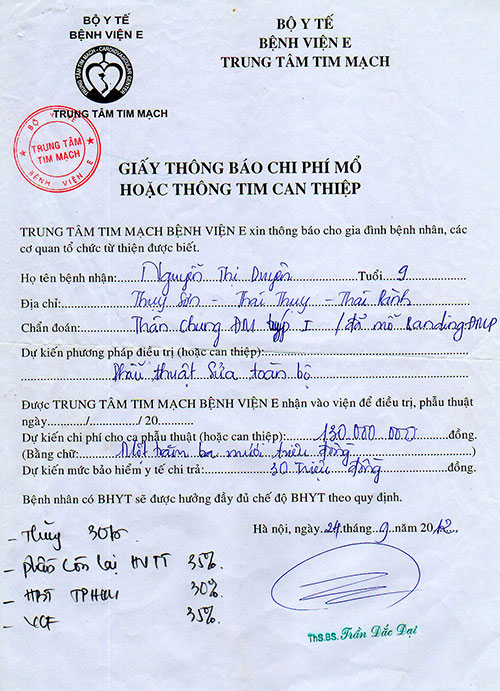 BỘ Y TẾ
BỆNH VIỆN E
TRUNG TÂM TIM MẠCH - CARDIOVASCULAR CENTER
TRUNG TÂM TIM MẠCH
BỘ Y TẾ
BỆNH VIỆN E
TRUNG TÂM TIM MẠCH
BỘ Y TẾ
TRUNG TÂM
TIM MẠCH
BỆNH VIỆN E
GIẤY THÔNG BÁO CHI PHÍ MỔ
HOẶC THÔNG TIM CAN THIỆP
TRUNG TÂM TIM MẠCH BỆNH VIỆN E xin thông báo cho gia đình bệnh nhân, các
cơ quan tổ chức từ thiện được biết.
Họ tên bệnh nhân: Nguyễn Thị Duyên Tuổi 9
Địa chỉ: Thụy Sơn - Thái Thụy - Thái Bình
Chẩn đoán: Thân Chung ĐM typ I / đã mổ Banding ĐMP
Dự kiến phương pháp điều trị (hoặc can thiệp):
Phẫu thuật sửa toàn bộ
Được TRUNG TÂM TIM MẠCH BỆNH VIỆN E nhận vào viện để điều trị, phẫu thuật
ngày ......../......../ 20.........
Dự kiến chi phí cho ca phẫu thuật (hoặc can thiệp): 130.000.000 đồng.
(Bằng chữ: Một trăm ba mươi triệu đồng )
Dự kiến mức bảo hiểm y tế chi trả: 30 Triệu đồng đồng.
Bệnh nhân có BHYT sẽ được hưởng đầy đủ chế độ BHYT theo quy định.
Hà nội, ngày 24 tháng 9 năm 2012
- Thùy 30tr
- phần còn lại HVTT 35%
- TPHCM 30%
- VCF 35%
ThS.BS. Trần Đắc Đại